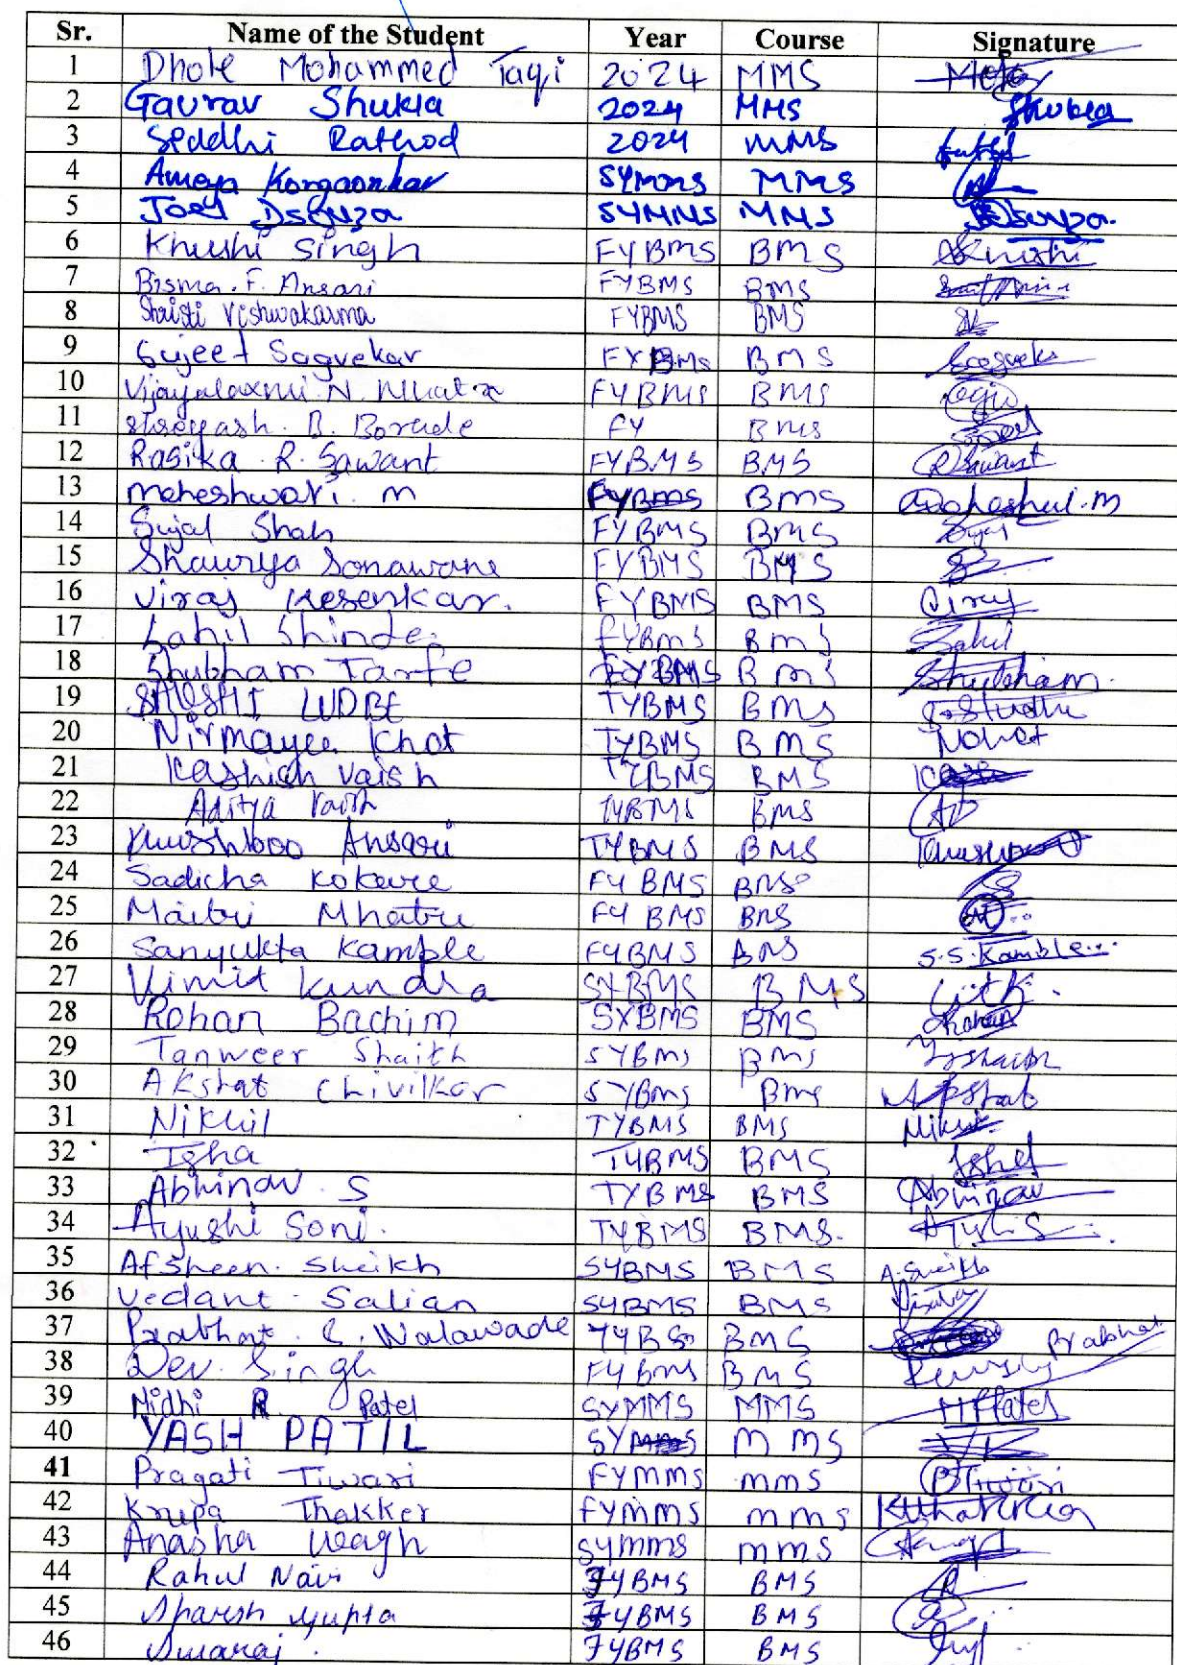 Sr. Name of the Student Year Course Signature
1 Dhole Mohammed Taqi 2024 MMS
2 Gaurav Shukla 2024 MMS Shukla
3 Siddhi Rathod 2024 MMS
4 Ameya Korgaonkar SYMMS MMS
5 Joel Dsouza SYMMS MMS Dsouza.
6 Khushi Singh FYBMS BMS Khushi
7 Bisma. F. Ansari FYBMS BMS
8 Shristi Vishwakarma FYBMS BMS
9 Sujeet Sagvekar FYBMS BMS
10 Vijayalaxmi N. Mhatre FYBMS BMS
11 Shreyash. B. Borade FY BMS
12 Rasika R. Sawant FYBMS BMS RSawant
13 Maheshwari. M FYBMS BMS
14 Sujal Shah FYBMS BMS Sujal
15 Shaurya Sonawane FYBMS BMS
16 Viraj Kesenkar. FYBMS BMS Viraj
17 Sahil Shinde. FYBMS BMS Sahil
18 Shubham Tarfe FYBMS BMS Shubham.
19 LUDBE TYBMS BMS
20 Nirmayee Khot TYBMS BMS NKhot
21 Kashish Vaish TYBMS BMS
22 Aditya Vaish TYBMS BMS
23 Khushboo Ansari TYBMS BMS
24 Sadicha Kokare FYBMS BMS
25 Maitri Mhatre FYBMS BMS
26 Sanyukta Kamble FYBMS BMS S.S.Kamble...
27 Vimit Kundra SYBMS BMS
28 Rohan Bachim SYBMS BMS Rohan
29 Tanweer Shaikh SYBMS BMS
30 Akshat Chivilkar SYBMS BMS Akshat
31 Nikhil TYBMS BMS
32 Isha TYBMS BMS
33 Abhinav S TYBMS BMS Abhinav
34 Ayushi Soni. TYBMS BMS.
35 Afsheen. Sheikh SYBMS BMS A.Sheikh
36 Vedant Salian SYBMS BMS
37 Prabhat. S. Walawade BMS Prabhat
38 Dev. Singh FYBMS BMS
39 Nidhi R Patel SYMMS MMS
40 YASH PATIL SYMMS MMS
41 Pragati Tiwari FYMMS MMS PTiwari
42 Krupa Thakker FYMMS MMS
43 Wagh SYMMS MMS
44 Rahul FYBMS BMS
45 Sparsh Gupta FYBMS BMS
46 Swaraj. FYBMS BMS